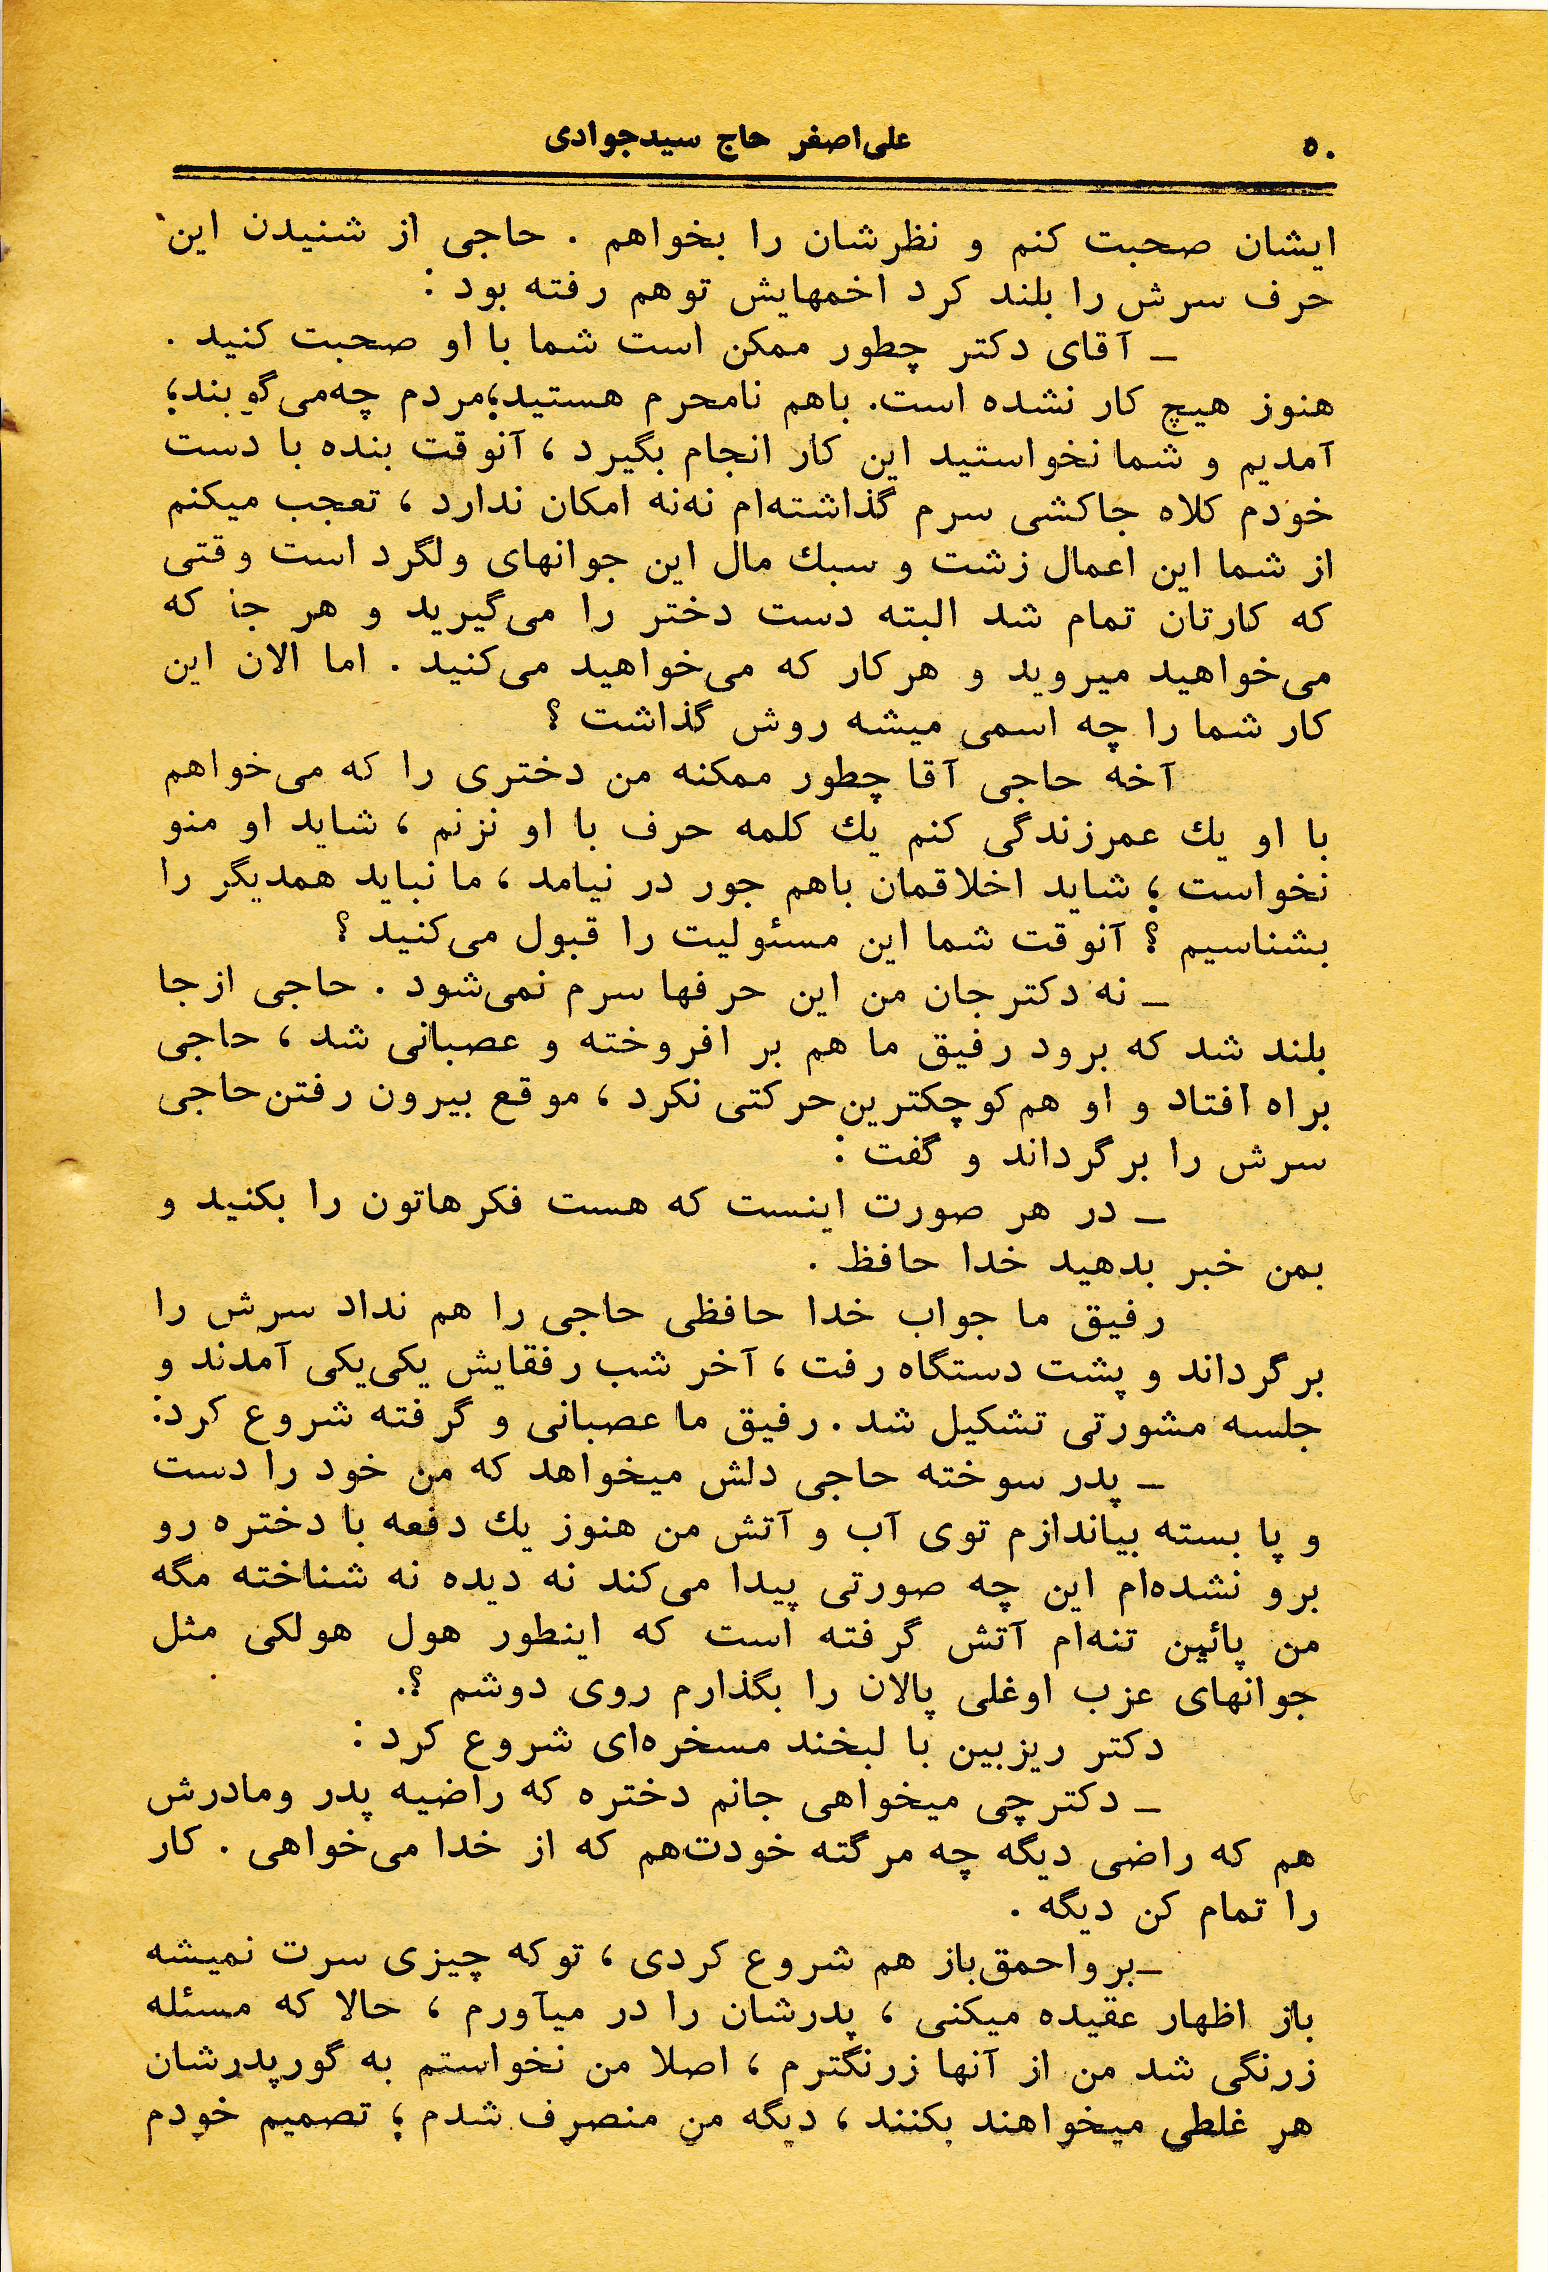 ۵۰
علی‌اصغر حاج سیدجوادی
ایشان صحبت کنم و نظرشان را بخواهم . حاجی از شنیدن این
حرف سرش را بلند کرد اخمهایش توهم رفته بود :
ـ آقای دکتر چطور ممکن است شما با او صحبت کنید .
هنوز هیچ کار نشده است. باهم نامحرم هستید؛مردم چه‌می‌گویند؛
آمدیم و شما نخواستید این کار انجام بگیرد ، آنوقت بنده با دست
خودم کلاه جاکشی سرم گذاشته‌ام نه‌نه امکان ندارد ، تعجب میکنم
از شما این اعمال زشت و سبك مال این جوانهای ولگرد است وقتی
که کارتان تمام شد البته دست دختر را می‌گیرید و هر جا که
می‌خواهید میروید و هرکار که می‌خواهید می‌کنید . اما الان این
کار شما را چه اسمی میشه روش گذاشت ؟
آخه حاجی آقا چطور ممکنه من دختری را که می‌خواهم
با او یك عمرزندگی کنم یك کلمه حرف با او نزنم ، شاید او منو
نخواست ؛ شاید اخلاقمان باهم جور در نیامد ، ما نباید همدیگر را
بشناسیم ؟ آنوقت شما این مسئولیت را قبول می‌کنید ؟
ـ نه دکترجان من این حرفها سرم نمی‌شود . حاجی ازجا
بلند شد که برود رفیق ما هم بر افروخته و عصبانی شد ، حاجی
براه افتاد و او هم‌کوچکترین‌حرکتی نکرد ، موقع بیرون رفتن‌حاجی
سرش را برگرداند و گفت :
ـ در هر صورت اینست که هست فکرهاتون را بکنید و
بمن خبر بدهید خدا حافظ .
رفیق ما جواب خدا حافظی حاجی را هم نداد سرش را
برگرداند و پشت دستگاه رفت ، آخر شب رفقایش یکی‌یکی آمدند و
جلسه مشورتی تشکیل شد . رفیق ما عصبانی و گرفته شروع کرد:
ـ پدر سوخته حاجی دلش میخواهد که من خود را دست
و پا بسته بیاندازم توی آب و آتش من هنوز یك دفعه با دختره رو
برو نشده‌ام این چه صورتی پیدا می‌کند نه دیده نه شناخته مگه
من پائین تنه‌ام آتش گرفته است که اینطور هول هولکی مثل
جوانهای عزب اوغلی پالان را بگذارم روی دوشم ؟.
دکتر ریزبین با لبخند مسخره‌ای شروع کرد :
ـ دکترچی میخواهی جانم دختره که راضیه پدر ومادرش
هم که راضی دیگه چه مرگته خودت‌هم که از خدا می‌خواهی . کار
را تمام کن دیگه .
ـبرواحمق‌باز هم شروع کردی ، توکه چیزی سرت نمیشه
باز اظهار عقیده میکنی ، پدرشان را در میآورم ، حالا که مسئله
زرنگی شد من از آنها زرنگترم ، اصلا من نخواستم به گورپدرشان
هر غلطی میخواهند بکنند ، دیگه من منصرف شدم ؛ تصمیم خودم